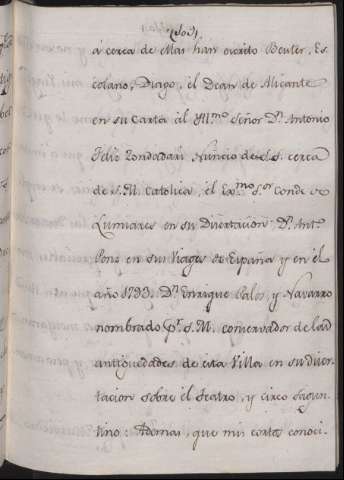 á cerca de Mas han escrito Beuter, Es
colano, Diago, el Dean de Alicante
en su Carta al Ill.mo Señor D.n Antonio
Felix Zondadari Nuncio de S.S. cerca
de S.M. Catolica, el Ex.mo S.or Conde de
Lumiares en su Disertacion: D.n Ant.o
Pons en sus Viages de España y en el
año 1793. D.n Enrique Palos, y Navarro
nombrado p.r S.M. conservador de las
antiguedades de esta Villa en su diser-
tacion sobre el Teatro, y circo Sagun-
tino: Ademas, que mis cortos conoci-